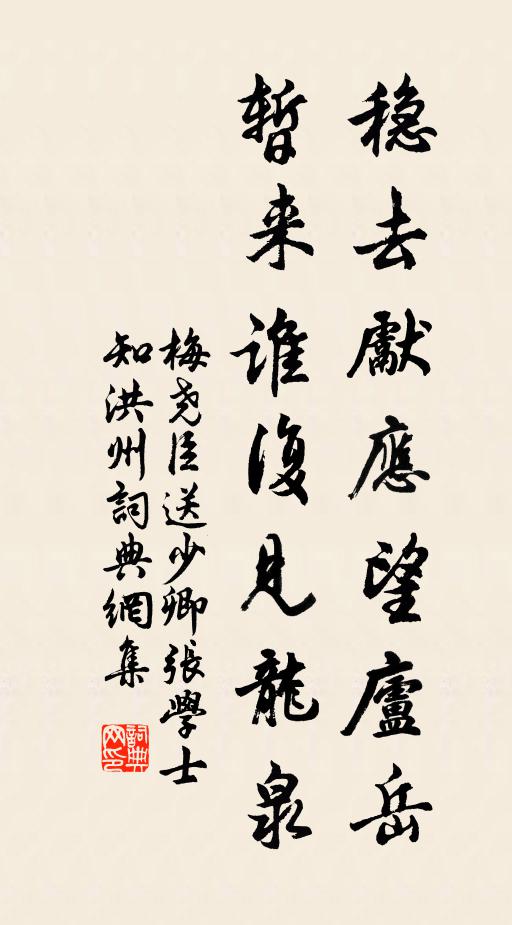 穏去獻應望廬岳
暫来誰復見龍泉
梅尧臣送少卿張學士
知洪州詞典網集
詞典网印